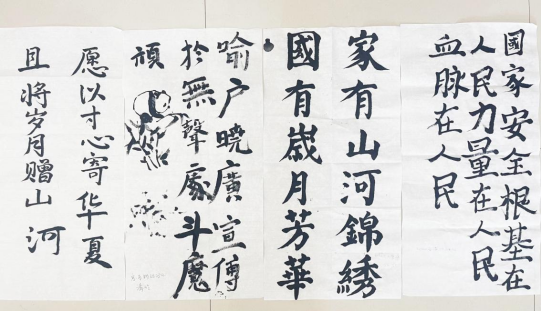 國家安全根基在
人民力量在人民
血脉在人民
家有山河錦綉
國有歲月芳華
喻户曉廣宣傳
於無聲處斗魔
頑
愿以寸心寄华夏
且将岁月赠山河